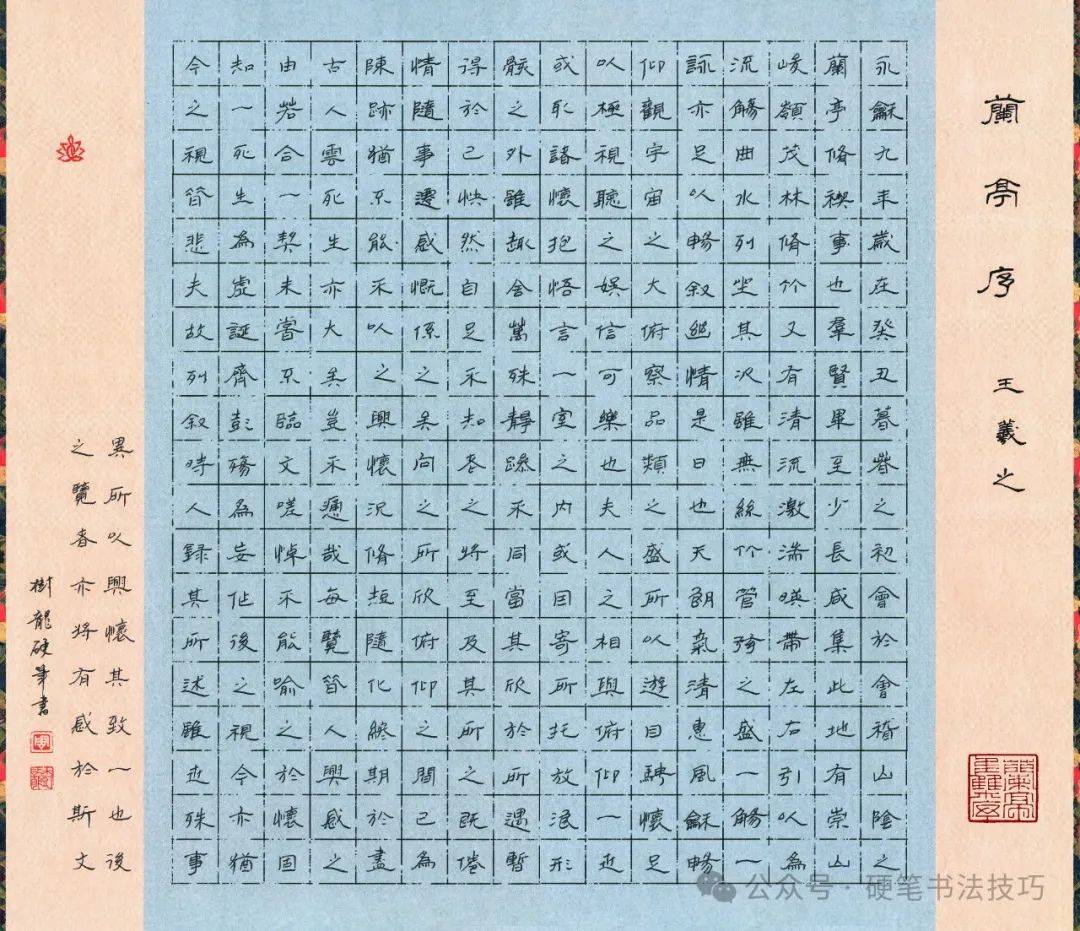 蘭亭序 王羲之
永龢九年歲在癸丑暮春之初會於會稽山陰之
蘭亭脩禊事也羣賢畢至少長咸集此地有崇山
峻嶺茂林脩竹又有清流激湍暎帶左右引以為
流觴曲水列坐其次雖無絲竹管弦之盛一觴一
詠亦足以暢叙幽情是日也天朗氣清惠風龢暢
仰觀宇宙之大俯察品類之盛所以遊目騁懷足
以極視聽之娛信可樂也夫人之相與俯仰一世
或取諸懷抱悟言一室之內或因寄所托放浪形
骸之外雖趣舍萬殊靜躁不同當其欣於所遇暫
得於己快然自足不知老之將至及其所之既倦
情隨事遷感慨係之矣向之所欣俯仰之間已為
陳跡猶不能不以之興懷況脩短隨化終期於盡
古人雲死生亦大矣豈不慟哉每覽昔人興感之
由若合一契未嘗不臨文嗟悼不能喻之於懷固
知一死生為虛誕齊彭殤為妄作後之視今亦猶
今之視昔悲夫故列叙時人錄其所述雖世殊事
異所以興懷其致一也後
之覽者亦將有感於斯文
樹龍硬筆書
公众号·硬笔书法技巧